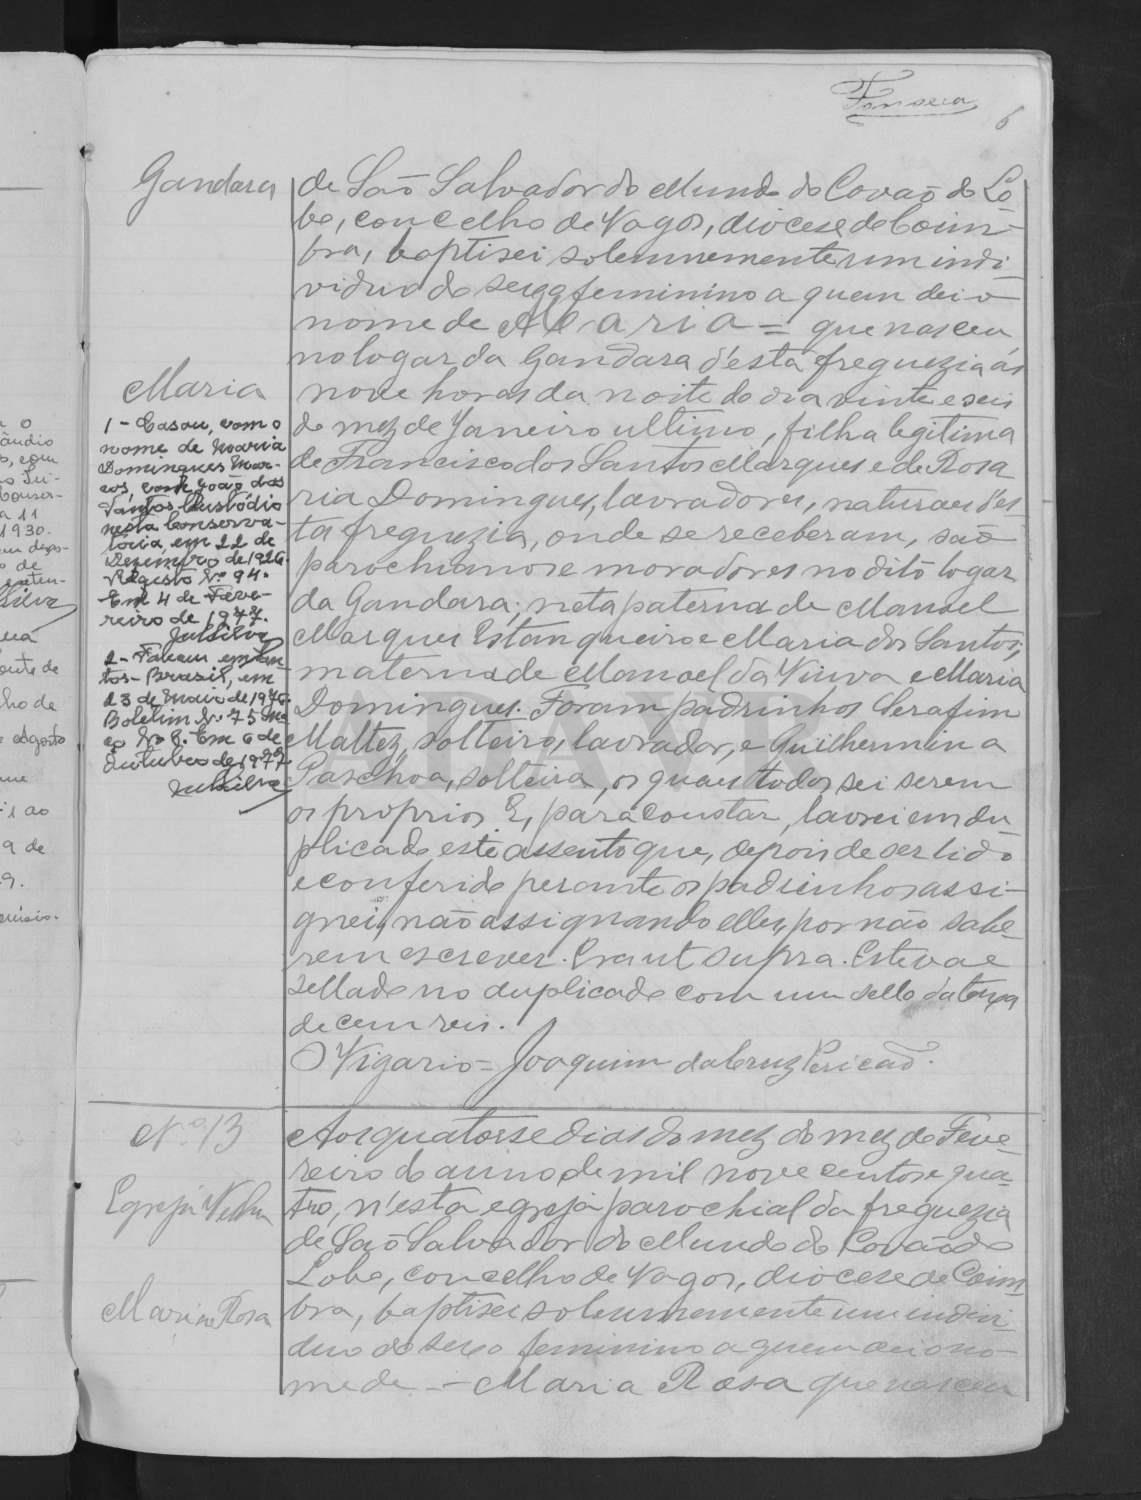 Fonseca
6
Gandara
de São Salvador do Mundo do Covão do Lo-
bo, concelho de Vagos, diocese de Coim-
bra, baptisei solemnemente um indi-
viduo do sexo feminino a quem dei o
nome de Maria = que nasceu
no logar da Gandara d'esta freguezia ás
nove horas da noite do dia vinte e seis
do mez de Janeiro ultimo, filha legitima
de Francisco dos Santos Marques e de Rosa
ria Domingues, lavradores, naturaes d'es
ta freguezia, onde se receberam, são
parochianos e moradores no dito logar
da Gandara; neta paterna de Manoel
Marques Estanqueiro e Maria dos Santos;
materna de Manoel da Viuva e Maria
Domingues. Foram padrinhos Serafim
Maltez, solteiro, lavrador, e Guilhermina
Paschoa, solteira, os quaes todos sei serem
os proprios. E, para constar, lavrei em du-
plicado este assento que, depois de ser lido
e conferido perante os padrinhos assi-
gnei, não assignando elles, por não sabe-
rem escrever. Era ut supra. Estevae
sellado no duplicado com um sello da taxa
de cem reis.
O Vigario = Joaquim da Cruz Pericão.
Maria
1 - Casou, com o
nome de Maria
Domingues Mar-
ques, com João dos
Santos Custódio
nesta Conserva-
tória, em 22 de
Dezembro de 1926.
Registo Nº 94.
Em 4 de Feve-
reiro de 1977.
2 - Faleceu em San-
tos - Brasil, em
23 de Maio de 1976.
Boletim Nº 75 Ma
ço Nº 8. Em 6 de
Outubro de 1977
ADAVR
Nº 13
Egreja Velha
Maria Rosa
Aos quatorse dias do mez do mez de Feve-
reiro do anno de mil nove centos e qua-
tro, n'esta egreja parochial da freguezia
de São Salvador do Mundo do Covão do
Lobo, concelho de Vagos, diocese de Coim-
bra, baptisei solemnemente um indivi-
duo do sexo feminino a quem dei o no-
me de - Maria Rosa que nasceu